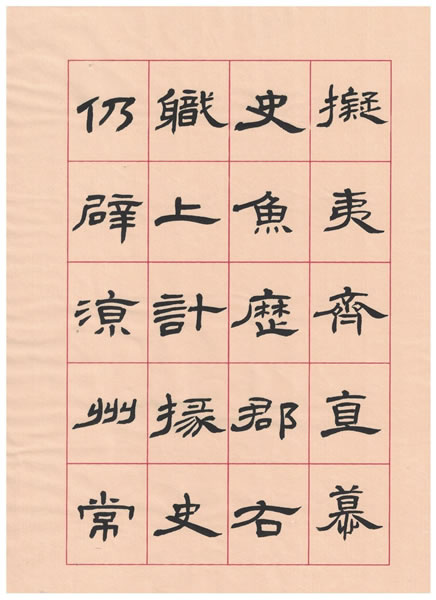 擬夷齊直慕
史魚歷郡右
職上計掾史
仍辟涼州常